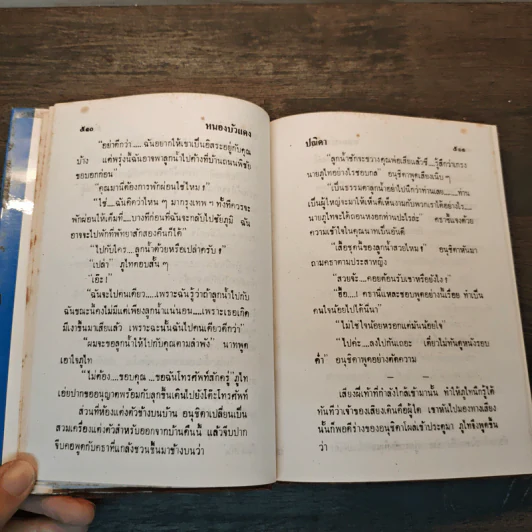 ๕๑๐
หนองบัวแดง
"อย่าดีกว่า..... ฉันอยากให้เขาเป็นอิสระอยู่กับคุณ
บ้าง แต่พรุ่งนี้ฉันอาจพาลูกน้ำไปค้างที่บ้านถนนพิชัย
ขอบอกก่อน"
"คุณมานีต้องการพักผ่อนใช่ไหม ?
"ใช่....ฉันคิดว่าไหน ๆ มากรุงเทพ ฯ ทั้งทีควรจะ
พักผ่อนให้เต็มที่.....บางทีก่อนที่ฉันจะกลับไปชัยภูมิ ฉัน
อาจจะไปพักที่พัทยาสักสองคืนก็ได้
"ไปกับใคร.... ลูกน้ำด้วยหรือเปล่าครับ !"
"เปล่า" ภูไทตอบสั้น ๆ
"เอ๊ะ !
"ฉันจะไปคนเดียว.....เพราะฉันรู้ว่าถ้าลูกน้ำไปกับ
ฉันขณะนี้คงไม่มีแค่เพียงลูกน้ำแน่นอน.....เพราะเธอเกิด
มีเงาขึ้นมาเสียแล้ว เพราะฉะนั้นฉันไปคนเดียวดีกว่า"
"ผมจะขอลูกน้ำให้ไปกับคุณตามลำพัง" นาทพูด
เอาใจภูไท
"ไม่ต้อง ....ขอบคุณ ...ขอฉันโทรศัพท์สักครู่" ภูไท
เอ่ยปากขออนุญาตพร้อมกับลุกขึ้นเดินไปยังโต๊ะโทรศัพท์
ส่วนที่ห้องแต่งตัวข้างบนบ้าน อนุธิดาเปลี่ยนเป็น
สวมเครื่องแต่งตัวสำหรับออกจากบ้านคืนนี้ แล้วจีบปาก
จีบคอพูดกับคราที่แกล้งชวนขึ้นมาข้างบนว่า
ปณิตา
๕๑๑
"ลูกน้ำชักจะขวางคุณพ่อเสียแล้วซี....รู้สึกว่าเกรง
นายภูไทอย่างไรชอบกล" อนุธิดาพูดเสียงเน้นๆ
"เป็นธรรมดาลูกน้ำอย่าไปนึกว่าท่านเลย......ท่าน
เป็นผู้ใหญ่จะมาให้เห็นดีเห็นงามกับพวกเราได้อย่างไร....
นายภูไทจะได้ถอนหงอกท่านปะไรล่ะ" คราชี้แจงด้วย
ความเข้าใจในคุณนาทเป็นอันดี
"เสื้อชุดนี้ของลูกน้ำสวยไหม !" อนุธิดาหันมา
ถามคราตามประสาหญิง
"สวยจ๊ะ.....คอยต้อนรับเขาหรือยังไง !
"ฮื้อ.....! ครานี่แหละชอบพูดอย่างนี้เรื่อย ทำเป็น
คนใจน้อยไปได้นี่นา"
"ไม่ใช่ใจน้อยหรอกแต่มันน้อยใจ"
"ไปค่ะ.....ลงไปกันเถอะ เดี๋ยวไม่ทันดูหนังรอบ
ค่ำ" อนุธิดาพูดอย่างตัดความ
เสียงฝีเท้าที่กำลังใกล้เข้ามานั้น ทำให้ภูไทนึกรู้ได้
ทันทีว่าเจ้าของเสียงเดินคือผู้ใด เขาหันไปมองทางเสียง
นั้นก็พอดีร่างของอนุธิดาโผล่เข้าประตูมา ภูไทจึงพูดขึ้น
ว่า